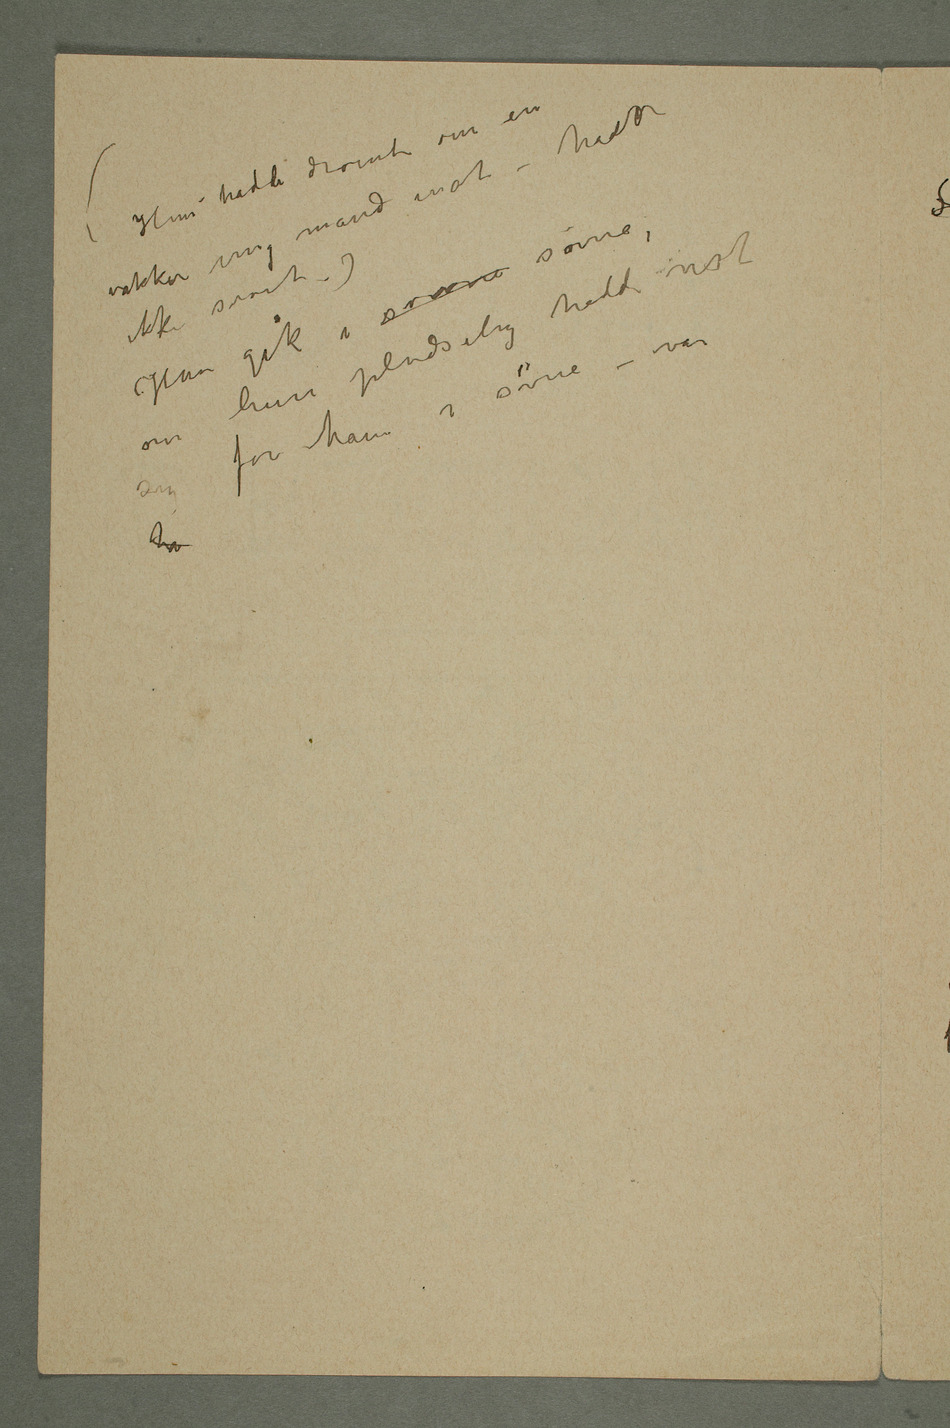 (Hun hadde drømt om en
vakker ung mand inat – hadde
ikke sovet –)
(Han gik i sovne søvne,
om hun pludselig hadde vist
sig for ham i søvne – var
ha